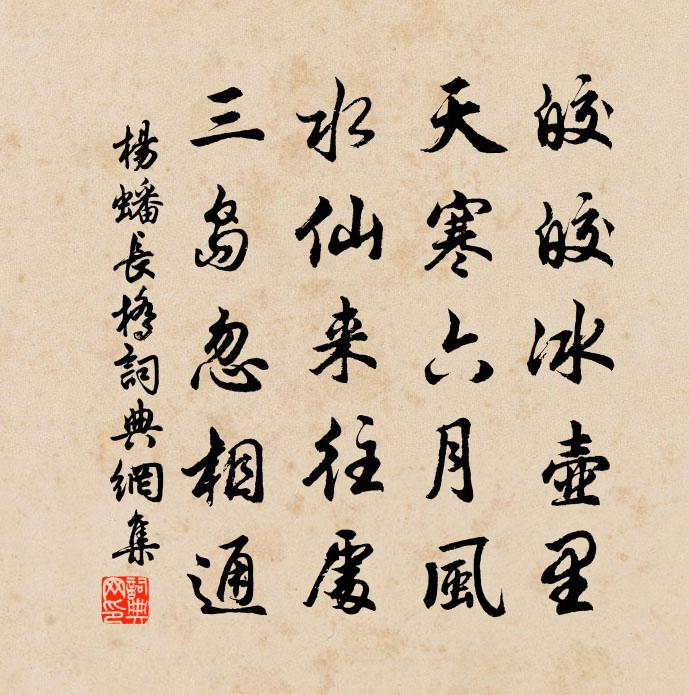 皎皎冰壺里
天寒六月風
水仙来往處
三島忽相通
楊蟠長橋詞典網集
詞典網印